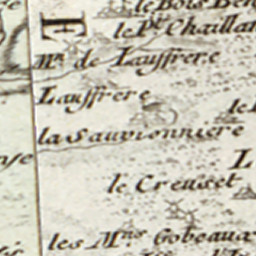 le Bois Ben
le Pt Chaillan
Mn de Lauffrere
Lauffrere
la Sauvionniere
L
le Creuset
les Mns Gobeaux